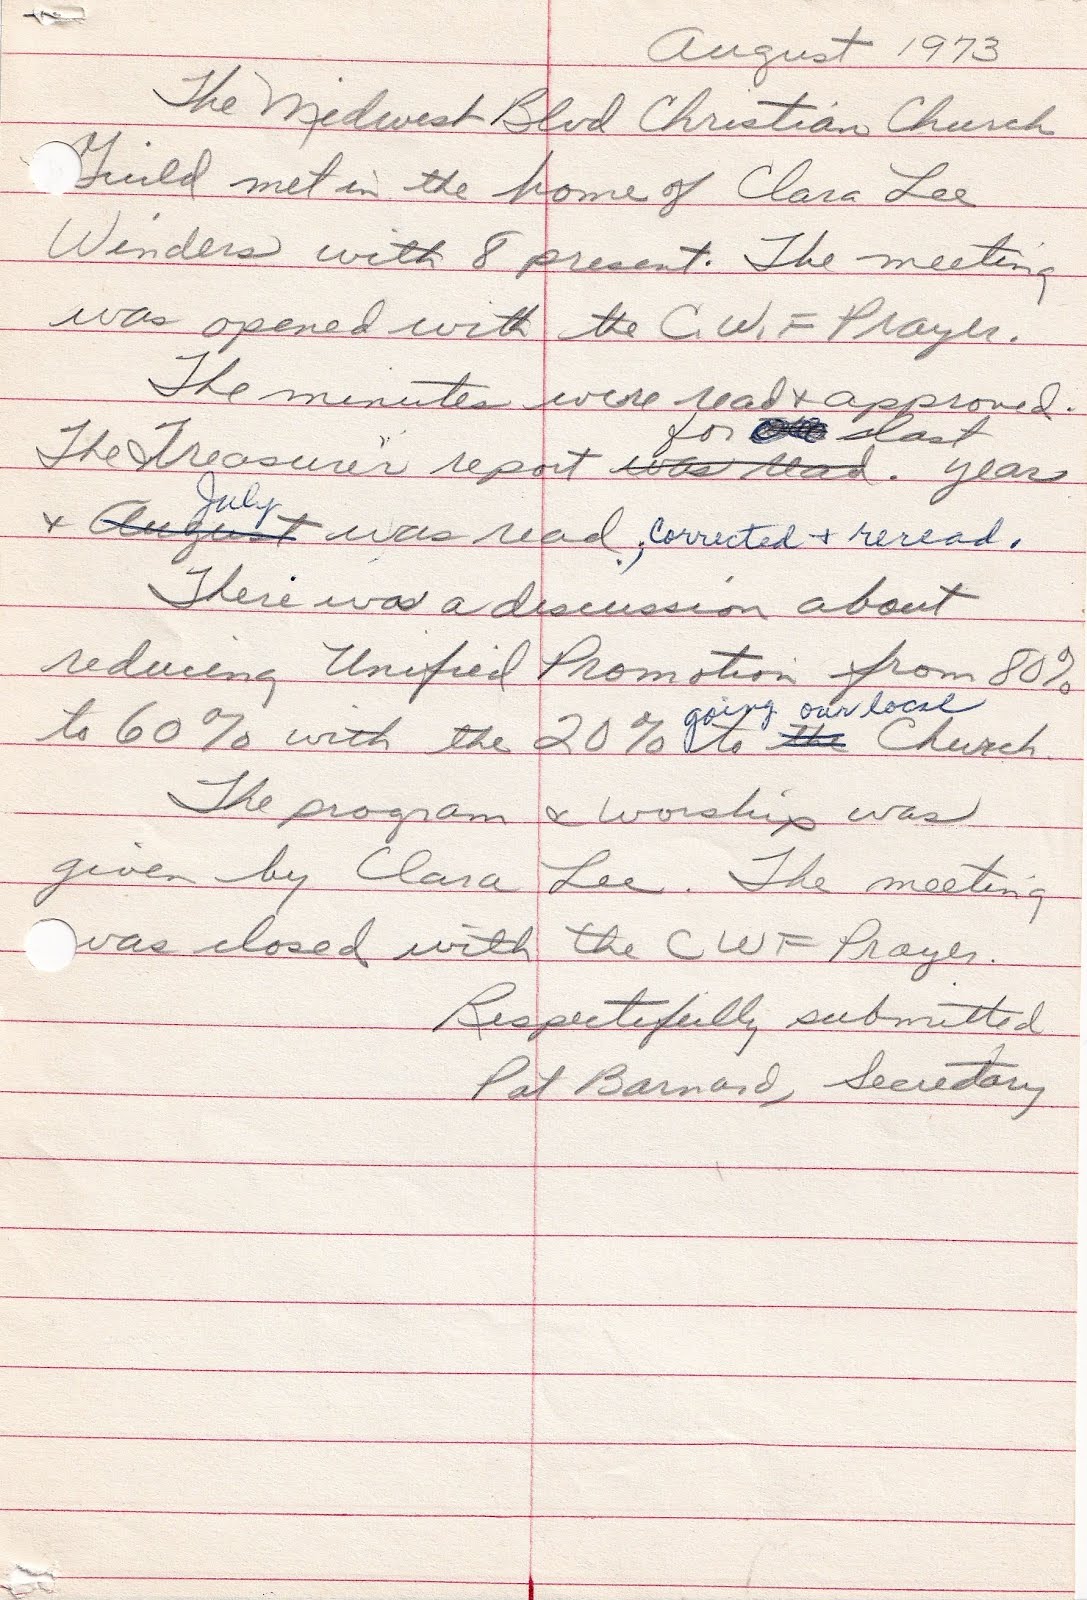 August 1973
The Midwest Blvd Christian Church
Guild met in the home of Clara Lee
Winders with 8 present. The meeting
was opened with the C.W.F Prayer.
The minutes were read & approved.
for last
The Treasurer's report was read. years
July
& August was read; corrected + reread.
There was a discussion about
reducing Unified Promotion from 80%
going our local
to 60% with the 20% to the Church.
The program & worship was
given by Clara Lee. The meeting
was closed with the CWF Prayer.
Respectifully submitted
Pat Barnard, Secretary